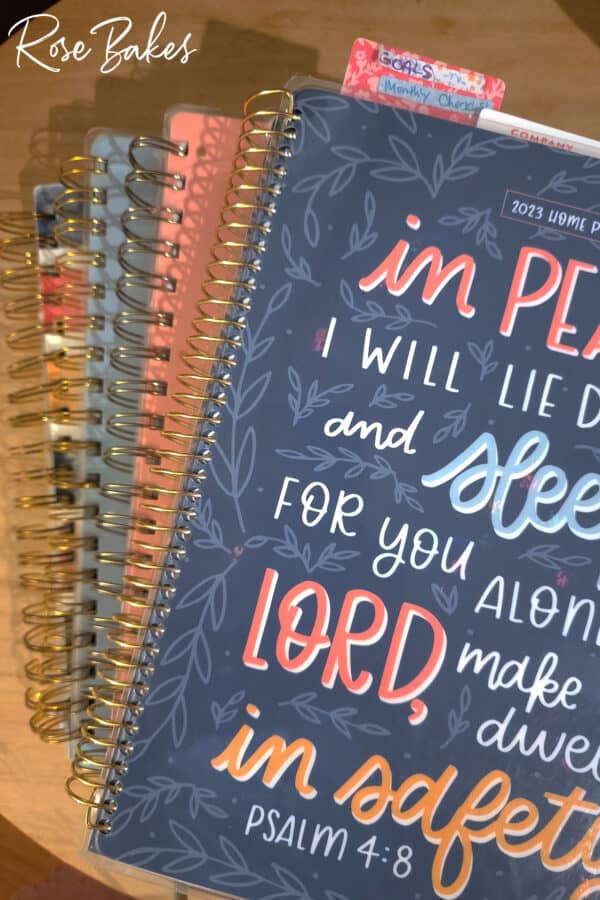 Rose Bakes
GOALS
Monthly Checklist
COMPANY
2023 HOME P
in PEA
I WILL LIE D
and slee
FOR YOU ALON
LORD, make
dwel
in safety
PSALM 4:8